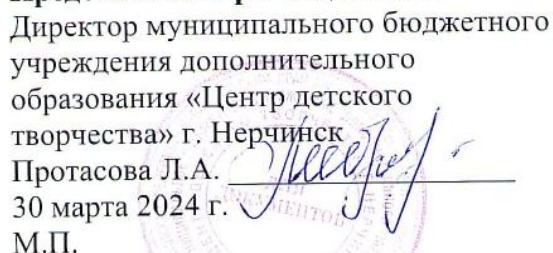 Директор муниципального бюджетного
учреждения дополнительного
образования «Центр детского
творчества» г. Нерчинск
Протасова Л.А.
ДЛЯ
ДОКУМЕНТОВ
30 марта 2024 г.
М.П.